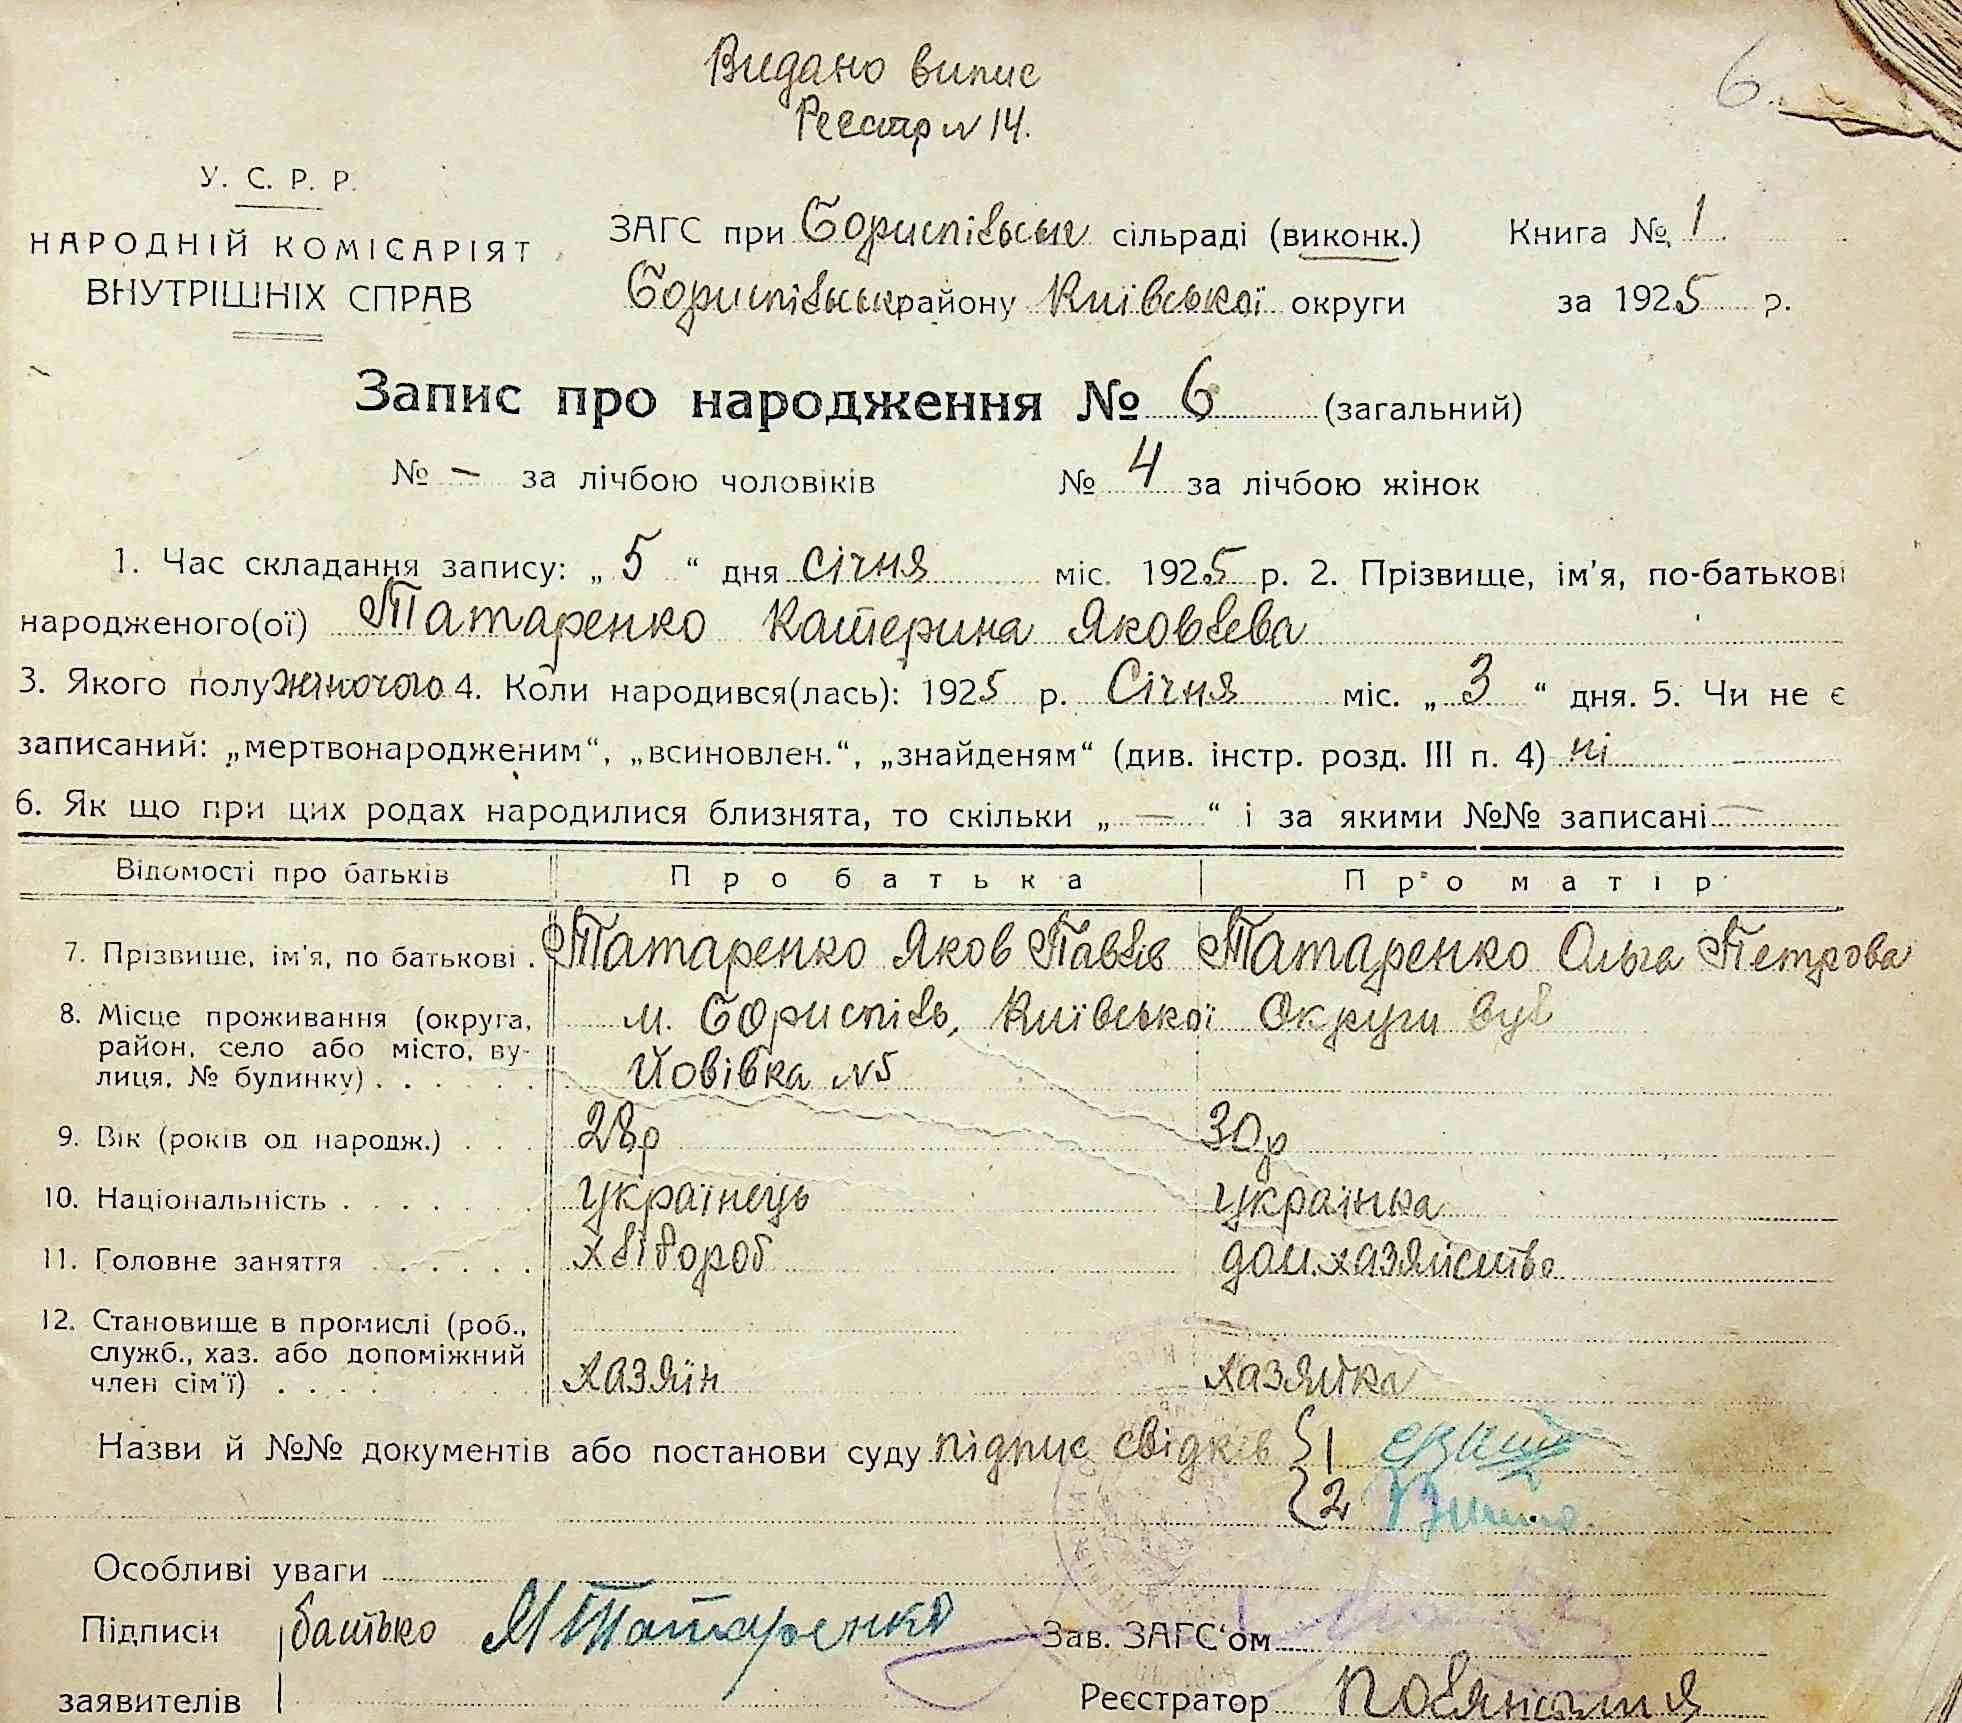 Видано випис
Реєстр N 14.
6.
У. С. Р. Р.
НАРОДНІЙ КОМІСАРІЯТ
ВНУТРІШНІХ СПРАВ
ЗАГС при Бориспільськ сільраді (виконк.)
Бориспільськ району Київської округи
Книга № 1
за 1925 р.
Запис про народження № 6 (загальний)
№ — за лічбою чоловіків № 4 за лічбою жінок
1. Час складання запису: „ 5 “ дня січня міс. 1925 р. 2. Прізвище, ім'я, по-батькові
народженого(ої) Татаренко Катерина Яковлева
3. Якого полу жіночого 4. Коли народився(лась): 1925 р. Січня міс. „ 3 “ дня. 5. Чи не є
записаний: „мертвонародженим“, „всиновлен.“, „знайденям“ (див. інстр. розд. III п. 4) ні
6. Як що при цих родах народилися близнята, то скільки „ — “ і за якими №№ записані —
Відомості про батьків Про батька Про матір
7. Прізвише, ім'я, по батькові . Татаренко Яков Павлів Татаренко Ольга Петрова
8. Місце проживання (округа, м. Бориспіль, Київської Округи вул
район, село або місто, ву-
лиця, № будинку) . . . . . . Йовівка N5
9. Вік (років од народж.) . . . 28р 30р
10. Національність . . . . . . . українець українка
11. Головне заняття . . . . . . хлібороб дом.хазяйство
12. Становище в промислі (роб.,
служб., хаз. або допоміжний
член сім'ї) . . . . хазяїн хазяйка
Назви й №№ документів або постанови суду підпис свідків 1
2
Особливі уваги
Підписи батько Я Татаренко Зав. ЗАГС'ом
заявителів Реєстратор